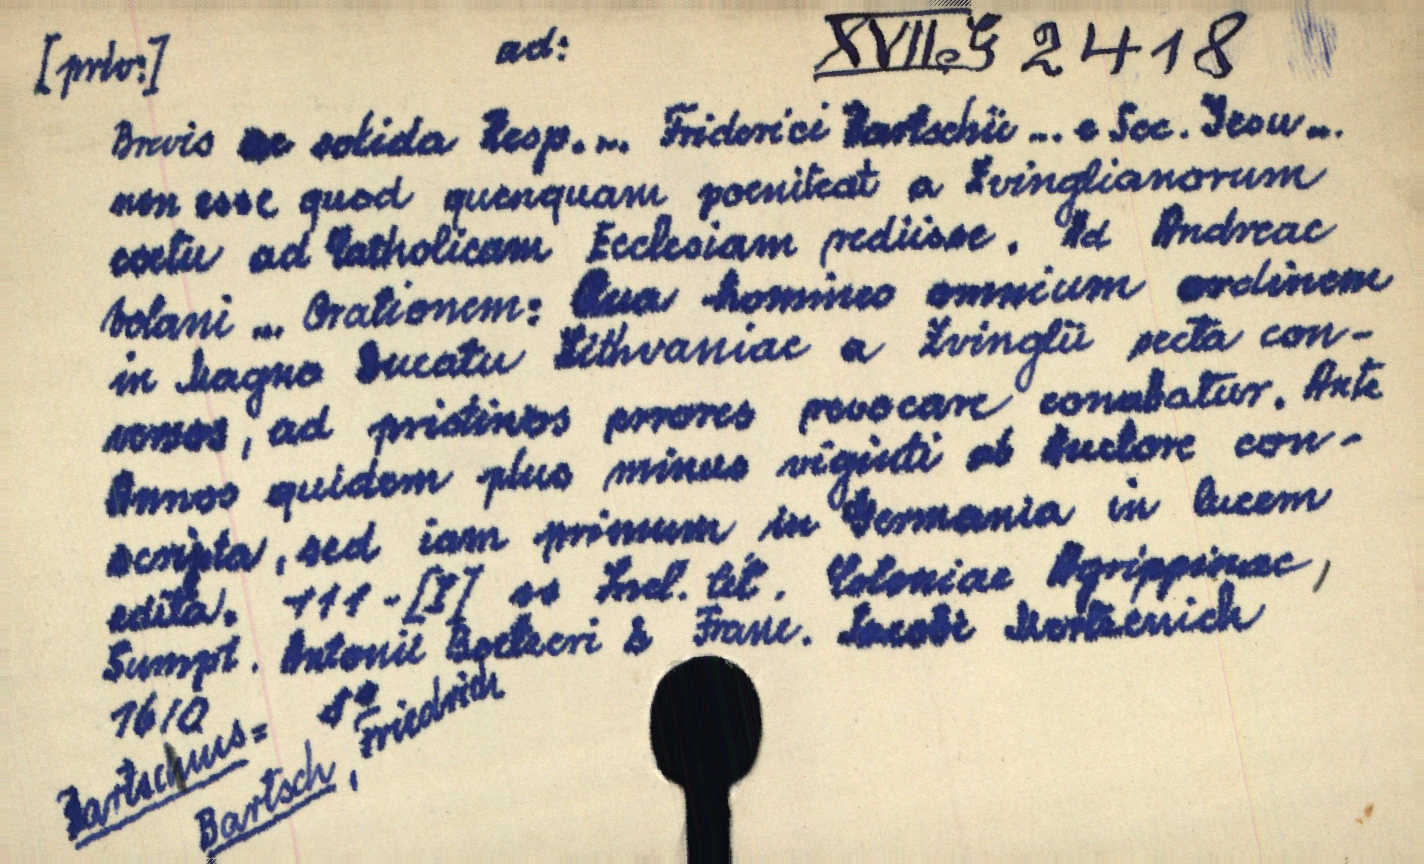 [priv:] ad: XVII. G 2418
Brevis ac solida Resp... Friderici Bartschii ... e Soc. Iesu...
non esse quod quenquam poeniteat a Zvinglianorum
coetu ad Catholicam Ecclesiam rediisse. Ad Andreae
Volani ... Orationem: Qua homines omnium ordinem
in Magno Ducatu Lithvaniae a Zvinglii secta con-
versos, ad pristinos errores revocare conabatur. Ante
Annos quidem plus minus viginti ab Auctore con-
scripta, sed iam primum in Germania in lucem
edita. 111-[I] ss Incl. tit. Coloniae Agrippinae,
Sumpt. Antonii Boetzeri & Franc. Iacobi Mertzenich
1610 4º
Bartschius =
Bartsch, Friedrich